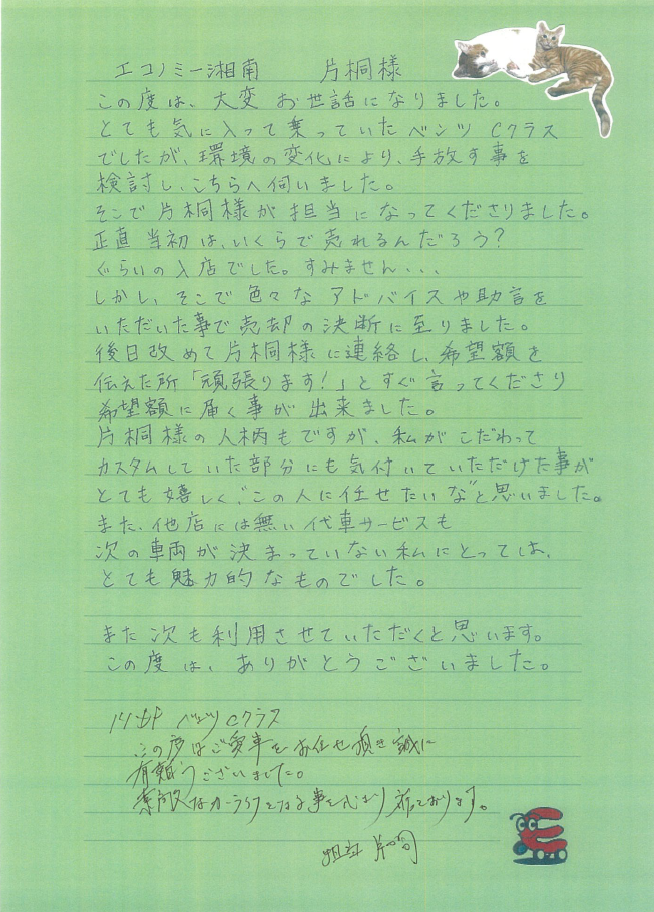 エコノミー湘南　片桐様
この度は、大変お世話になりました。
とても気に入って乗っていたベンツ Cクラス
でしたが、環境の変化により、手放す事を
検討し、こちらへ伺いました。
そこで片桐様が担当になってくださりました。
正直当初は、いくらで売れるんだろう?
ぐらいの入店でした。すみません・・・
しかし、そこで色々なアドバイスや助言を
いただいた事で売却の決断に至りました。
後日改めて片桐様に連絡し、希望額を
伝えた所「頑張ります!」とすぐ言ってくださり
希望額に届く事が出来ました。
片桐様の人柄もですが、私がこだわって
カスタムしていた部分にも気付いていただけた事が
とても嬉しく、"この人に任せたいな"と思いました。
また、他店には無い代車サービスも
次の車両が決まっていない私にとっては、
とても魅力的なものでした。
また次も利用させていただくと思います。
この度は、ありがとうございました。
ベンツ Cクラス
この度はご愛車をお任せ頂き誠に
有難うございました。
素敵なカーライフとなる事を心より祈っております。
担当 片桐